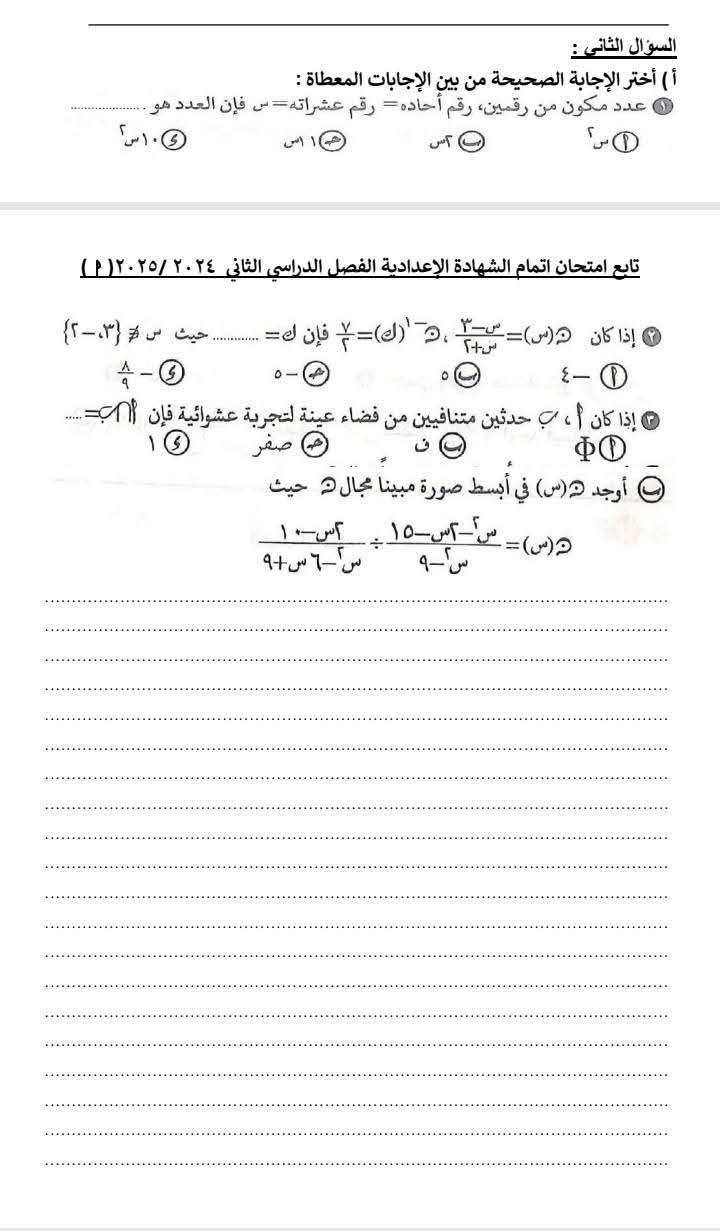 السؤال الثاني :
أ ) أختر الإجابة الصحيحة من بين الإجابات المعطاة :
١ عدد مكون من رقمين، رقم أحاده= رقم عشراته= س فإن العدد هو ....................
أ س² ب ٢س ج ١١س د ١٠س²
تابع امتحان اتمام الشهادة الإعدادية الفصل الدراسي الثاني ٢٠٢٤ /٢٠٢٥( أ )
٢ إذا كان ن(س)= (س-٣)/(س+٢) ، ن⁻¹(ك)= ٧/٢ فإن ك= ............ حيث س ∉ {٣، -٢}
أ -٤ ب ٥ ج -٥ د -٨/٩
٣ إذا كان أ ، ب حدثين متنافيين من فضاء عينة لتجربة عشوائية فإن أ∩ب=.....
أ Φ ب ف ج صفر د ١
ب أوجد ن(س) في أبسط صورة مبينا مجال ن حيث
ن(س)= (س²-٢س-١٥)/(س²-٩) ÷ (٢س-١٠)/(س²-٦س+٩)